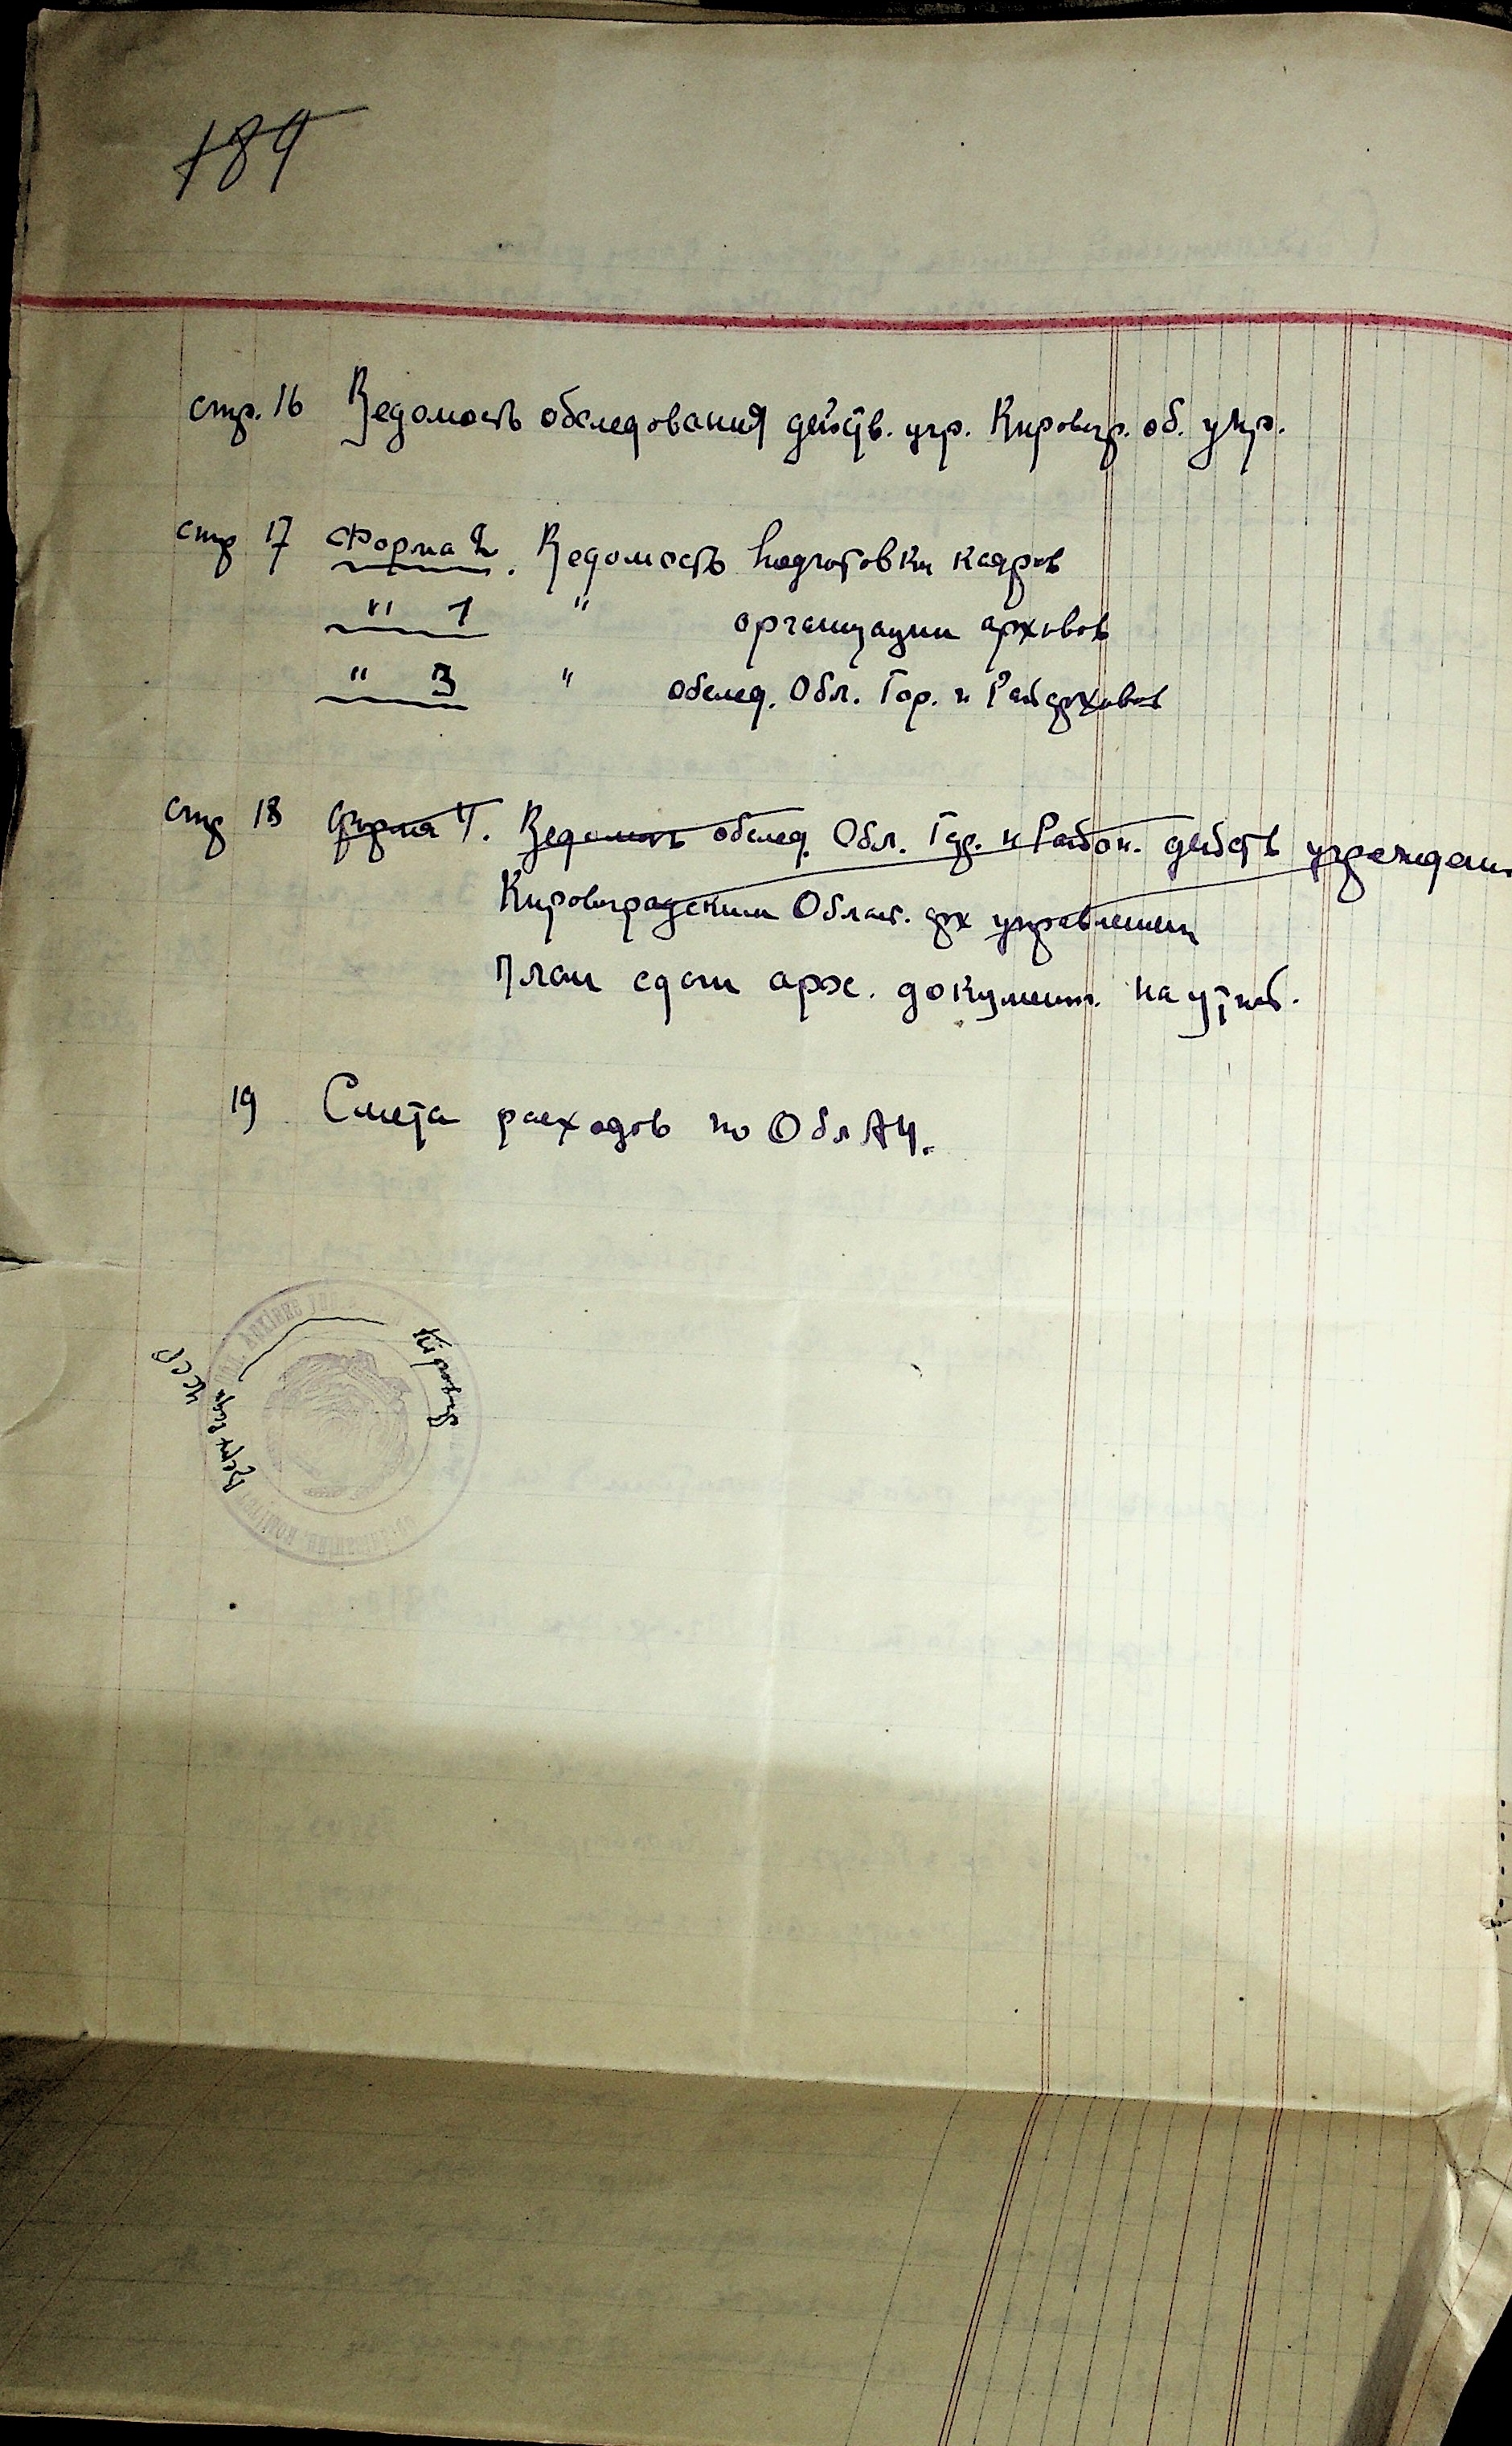 184
стр. 16 Ведомость обследования действ. учр. Кировогр. об. упр.
стр 17 Форма 2. Ведомость подготовки кадров
" 1 " организации архивов
" 3 " обслед. Обл. Гор. и Райархивов
стр 18 Форма 4. Ведомость обслед. Обл. Гор. и Район. действ учрежден.
Кировоградским Област. арх управлением
План сдачи арх. документ. на утил.
19 Смета расходов по Обл АУ.
Кировогр
УССР